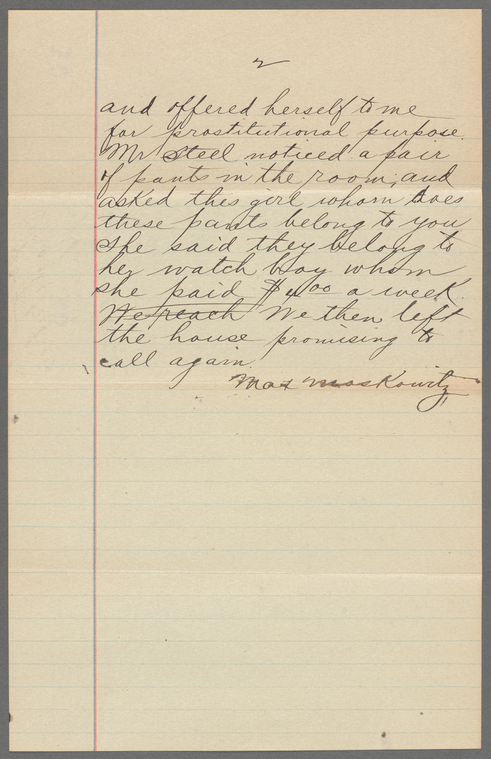 2
and offered herself to me
for prostitutional purpose.
Mr Steel noticed a pair
of pants in the room, and
asked this girl whom does
these pants belong to you
She said they belong to
her watch boy whom
she paid $4.00 a week.
We reach We then left
the house promising to
call again.
Max Moskowitz